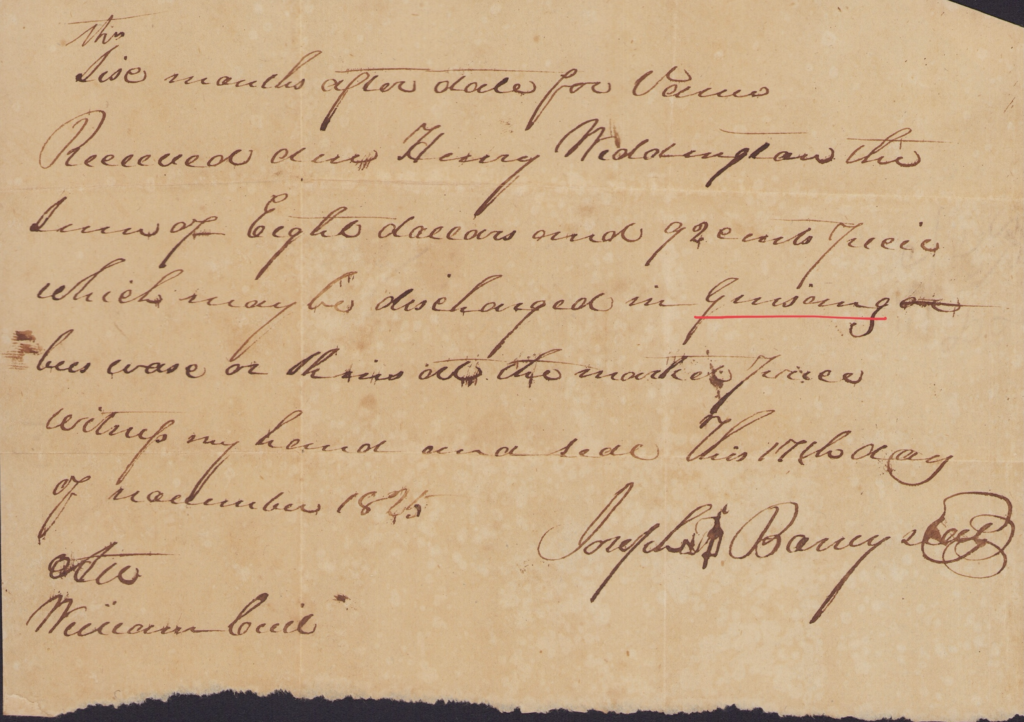 Sixe months after date for Vanue
Received due Henry Weddington the
Sum of Eight dollars and 92 cents
which may be discharged in Ginseng or
bees waxe or at the market price
witness my hand and seal This 17th day
of november 1825
Joseph Barney seal
Atte
William Ceril